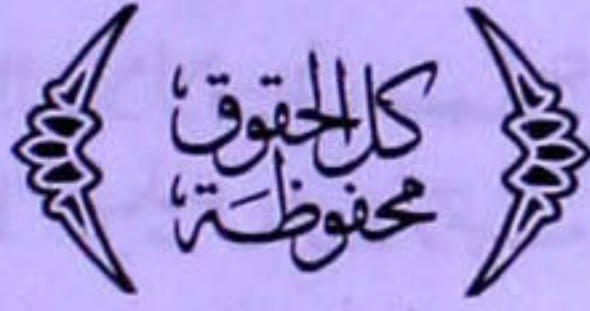 كل الحقوق
محفوظة